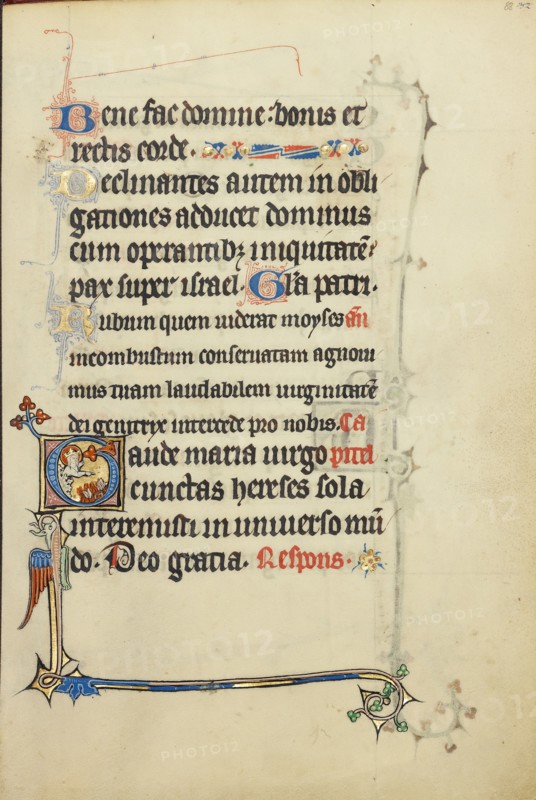 Bene fac domine: bonis et
rectis corde.
Declinantes autem in obli
gationes adducet dominus
cum operantibꝫ iniquitatē:
pax super israel. Gl'a patri.
Rubum quem uiderat moyses añ
incombustum conseruatam agnoui
mus tuam laudabilem uirginitatē
dei genitrix intercede pro nobis. Ca
Gaude maria uirgo pitel
cunctas hereses sola
interemisti in uniuerso mū
do. Deo gratia. Respons.
PHOTO12